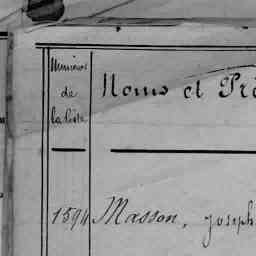 Numéros
de
la liste
Noms et Pré
1594 Masson, Joseph